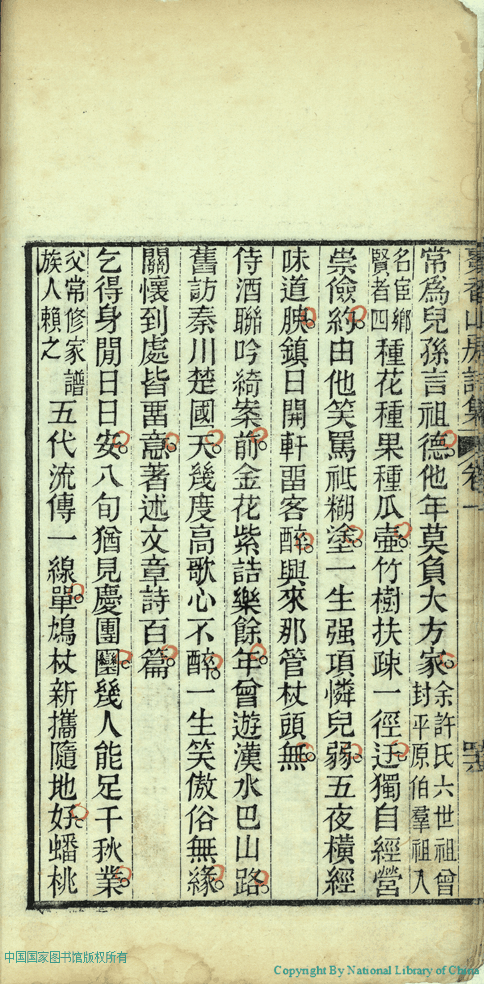 山房詩集 卷一
常為兒孫言祖德他年莫負大方家余許氏六世祖曾封平原伯羣祖入
名宦鄉賢者四種花種果種瓜壺竹樹扶疎一徑迂獨自經營
崇儉約由他笑罵祗糊塗一生强項憐兒弱五夜橫經
味道腴鎮日開軒畱客醉興來那管杖頭無
侍酒聯吟綺案前金花紫誥樂餘年曾遊漢水巴山路
舊訪秦川楚國天幾度高歌心不醉一生笑傲俗無緣
關懷到處皆畱意著述文章詩百篇
乞得身閒日日安八旬猶見慶團圞幾人能足千秋業
父常修家譜族人賴之五代流傳一線單鳩杖新攜隨地好蟠桃
中国国家图书馆版权所有
Copyright By National Library of China